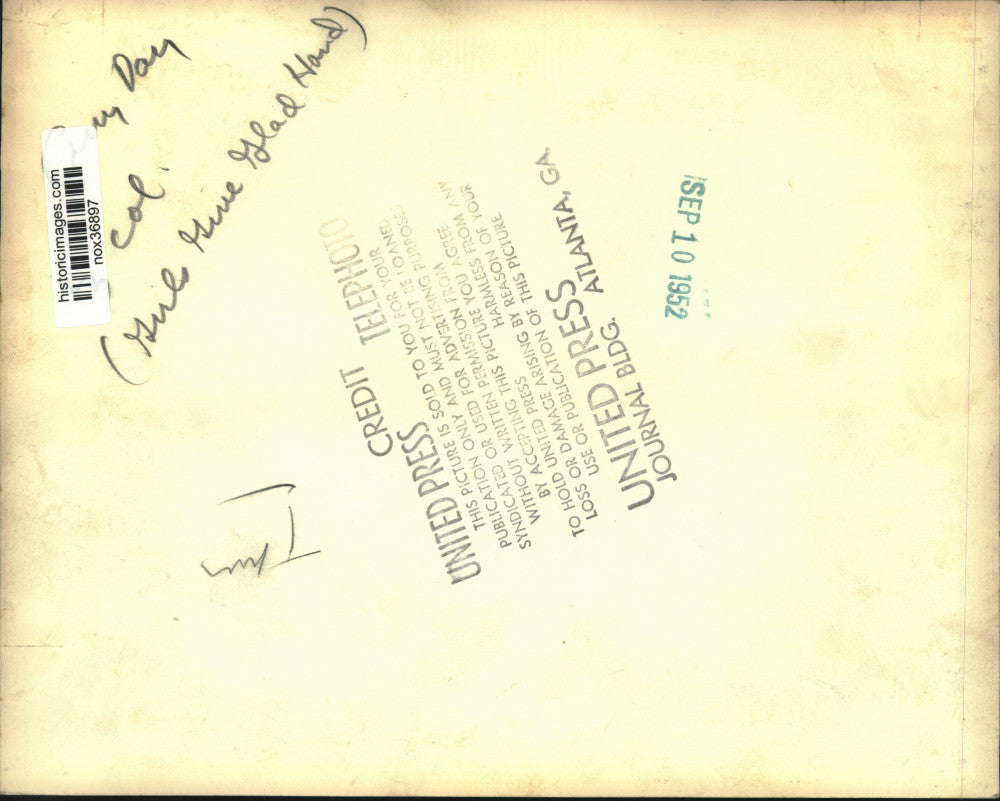 Day
Col.
(Girls Give Glad Hand)
historicimages.com
nox36897
CREDIT TELEPHOTO
UNITED PRESS
THIS PICTURE IS SOLD TO YOU FOR YOUR
PUBLICATION ONLY AND MUST NOT BE LOANED
SYNDICATED OR USED FOR ADVERTISING PURPOSES
WITHOUT WRITTEN PERMISSION FROM
BY ACCEPTING THIS PICTURE YOU AGREE
TO HOLD UNITED PRESS HARMLESS FROM ANY
LOSS OR DAMAGE ARISING BY REASON OF YOUR
USE OR PUBLICATION OF THIS PICTURE
UNITED PRESS
JOURNAL BLDG. ATLANTA, GA.
SEP 10 1952